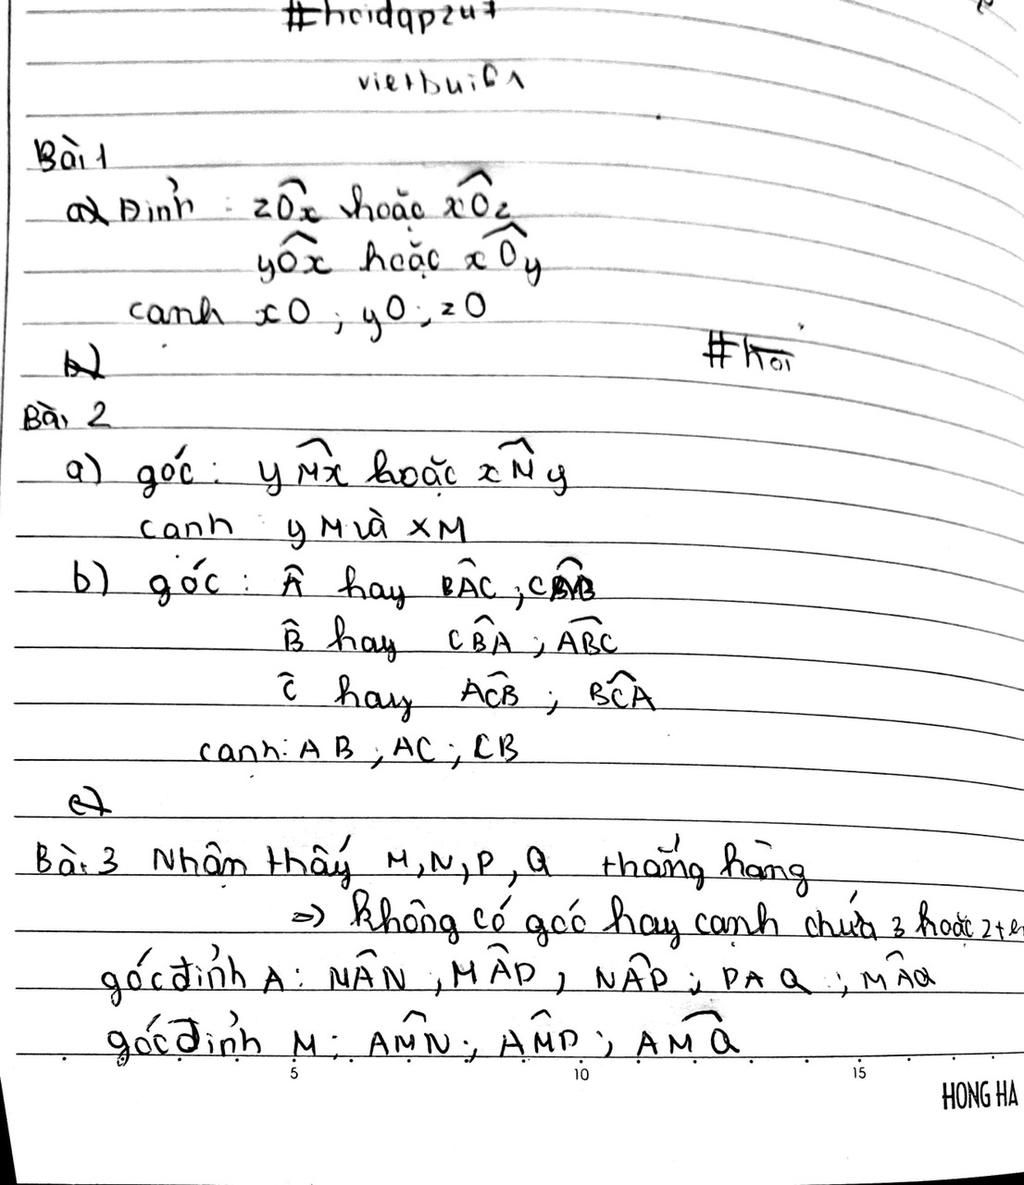 #hoidap247
vietbui61
Bài 1
a) Đỉnh : zÔx hoặc xÔz
yÔx hoặc xÔy
cạnh xO ; yO ; zO
#hỏi
Bài 2
a) góc : yM̂x hoặc xM̂y
cạnh : yM và xM
b) góc : Â hay BÂC ;
B̂ hay CB̂A ; AB̂C
Ĉ hay AĈB ; BĈA
cạnh: AB ; AC ; CB
Bài 3 Nhận thấy M, N, P, Q thẳng hàng
=> Không có góc hay cạnh chứa 3 hoặc
góc đỉnh A: MÂN , MÂP , NÂP ; PAQ ; MÂQ
góc đỉnh M : AM̂N ; AM̂P ; AM̂Q
5 10 15
HONG HA